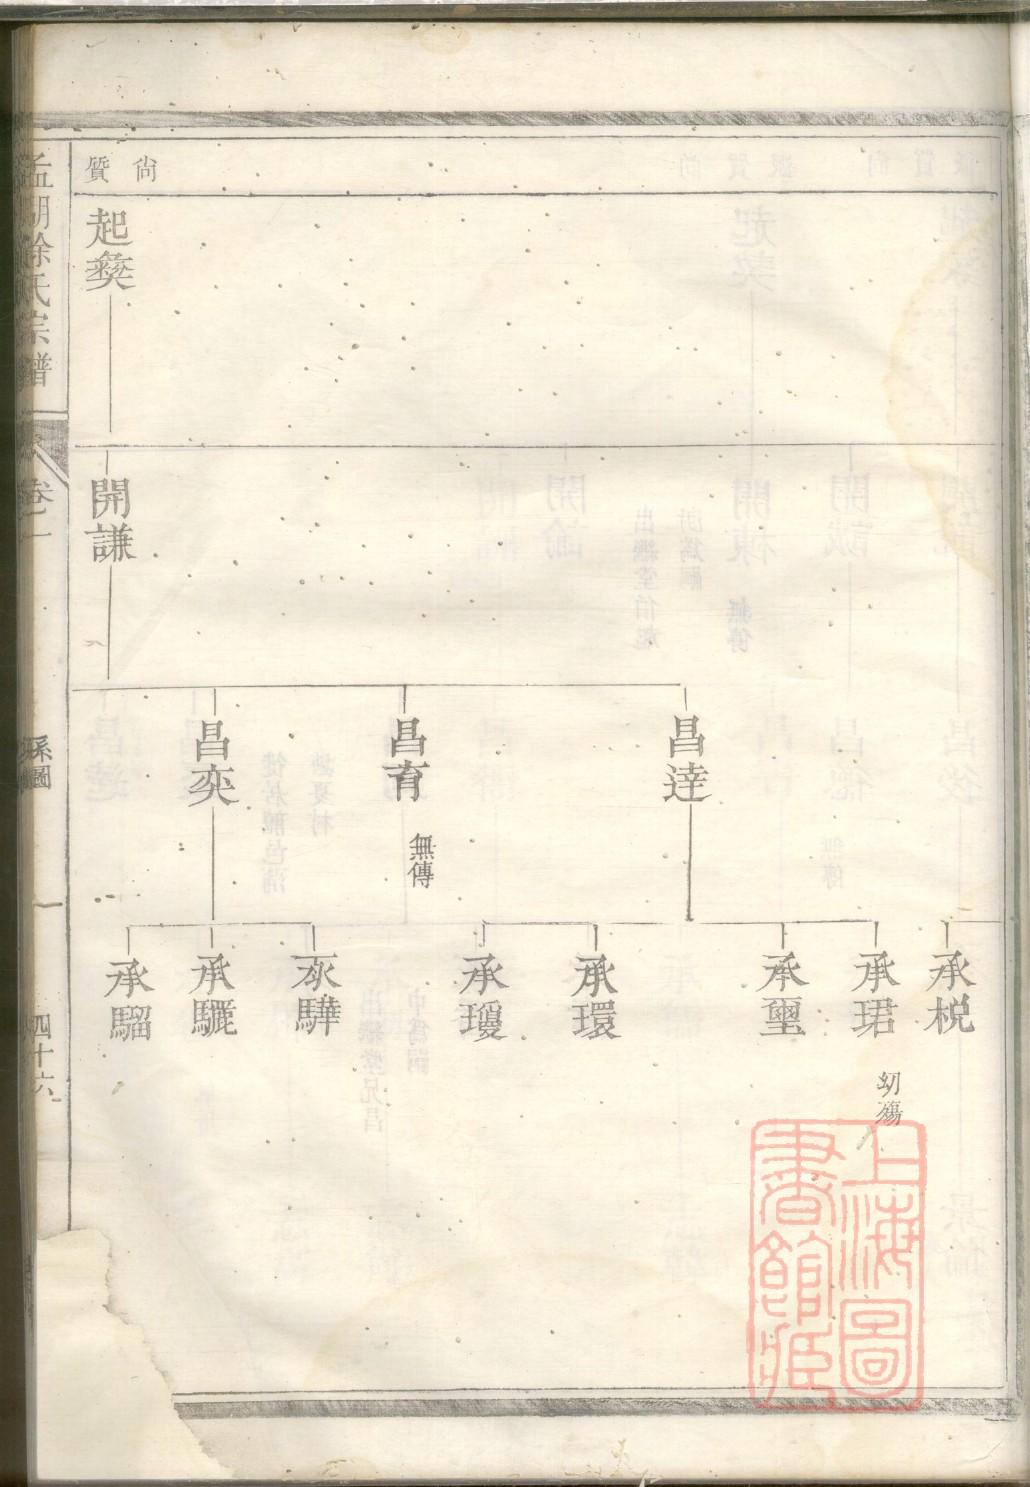 尙質
起彜
開謙
昌達
昌育
無傳
昌奕
承棁
承珺
幼殤
承璽
承環
承瓊
承驊
承驪
承騮
孟湖徐氏宗譜
卷一
系圖
四十六
上海圖書館藏